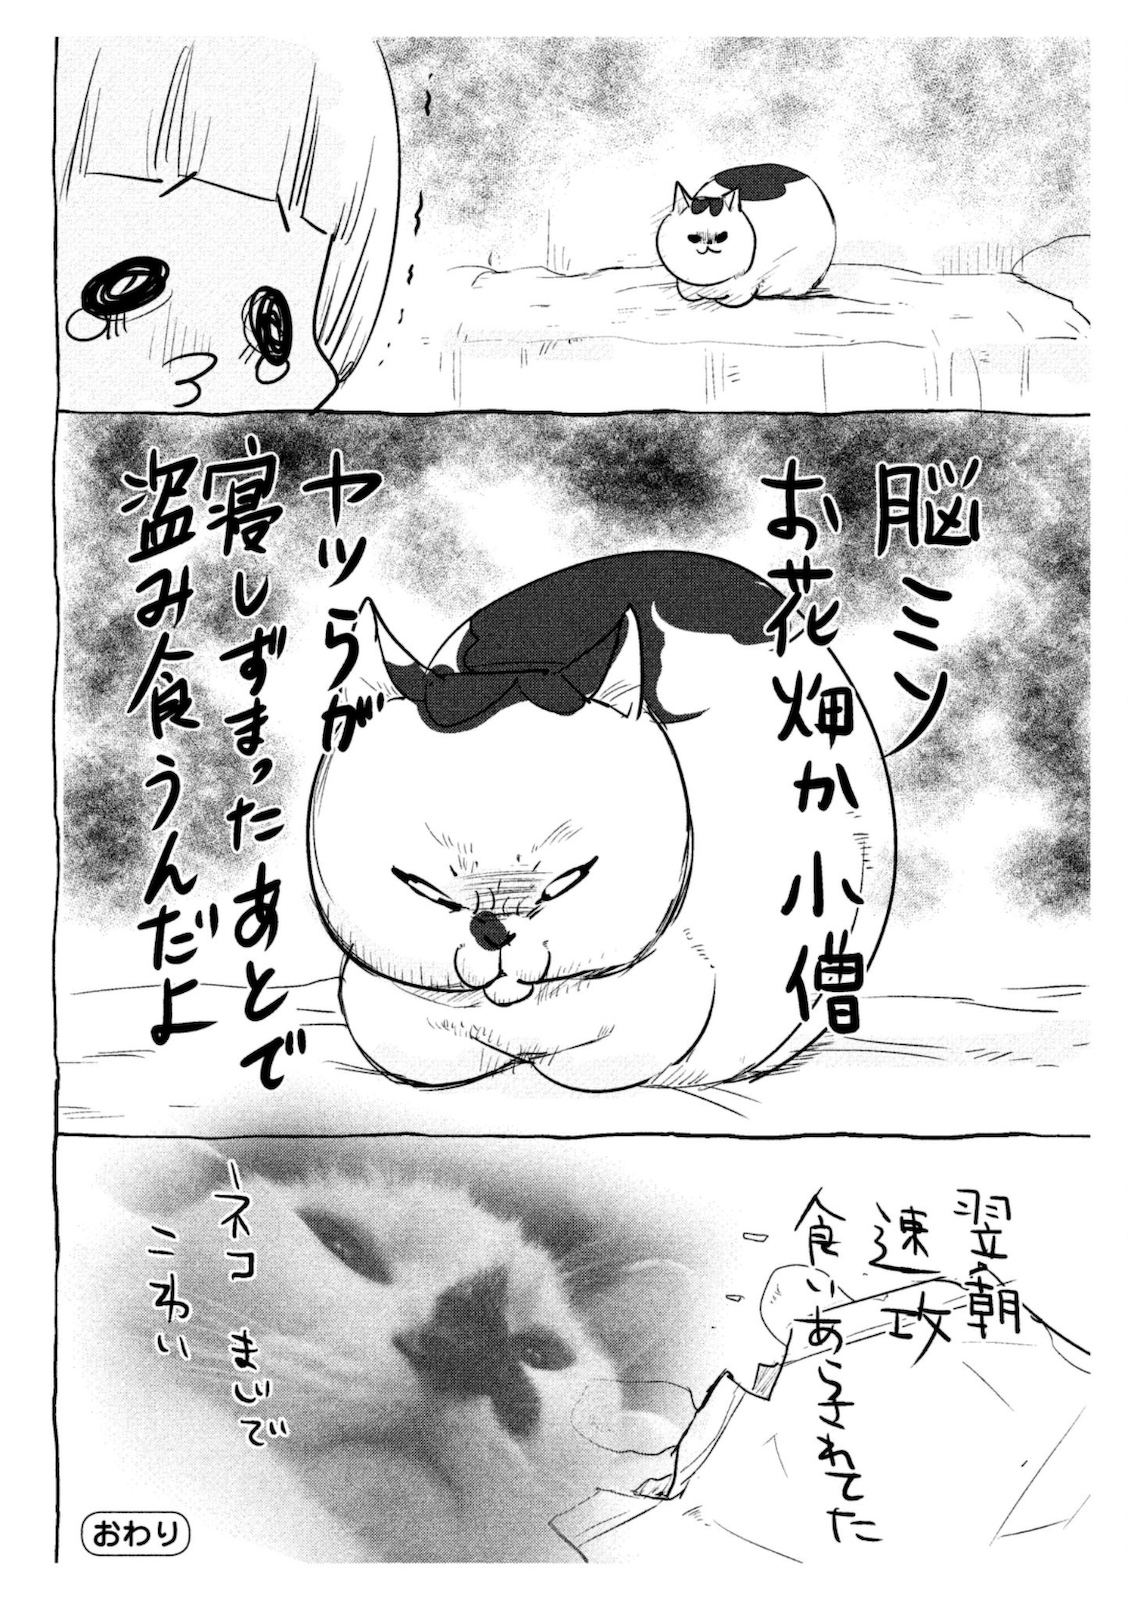 脳ミソ
お花畑か小僧
ヤツらが
寝しずまったあとで
盗み食うんだよ
翌朝
速攻
食いあらされてた
ネコまじで
こわい
おわり